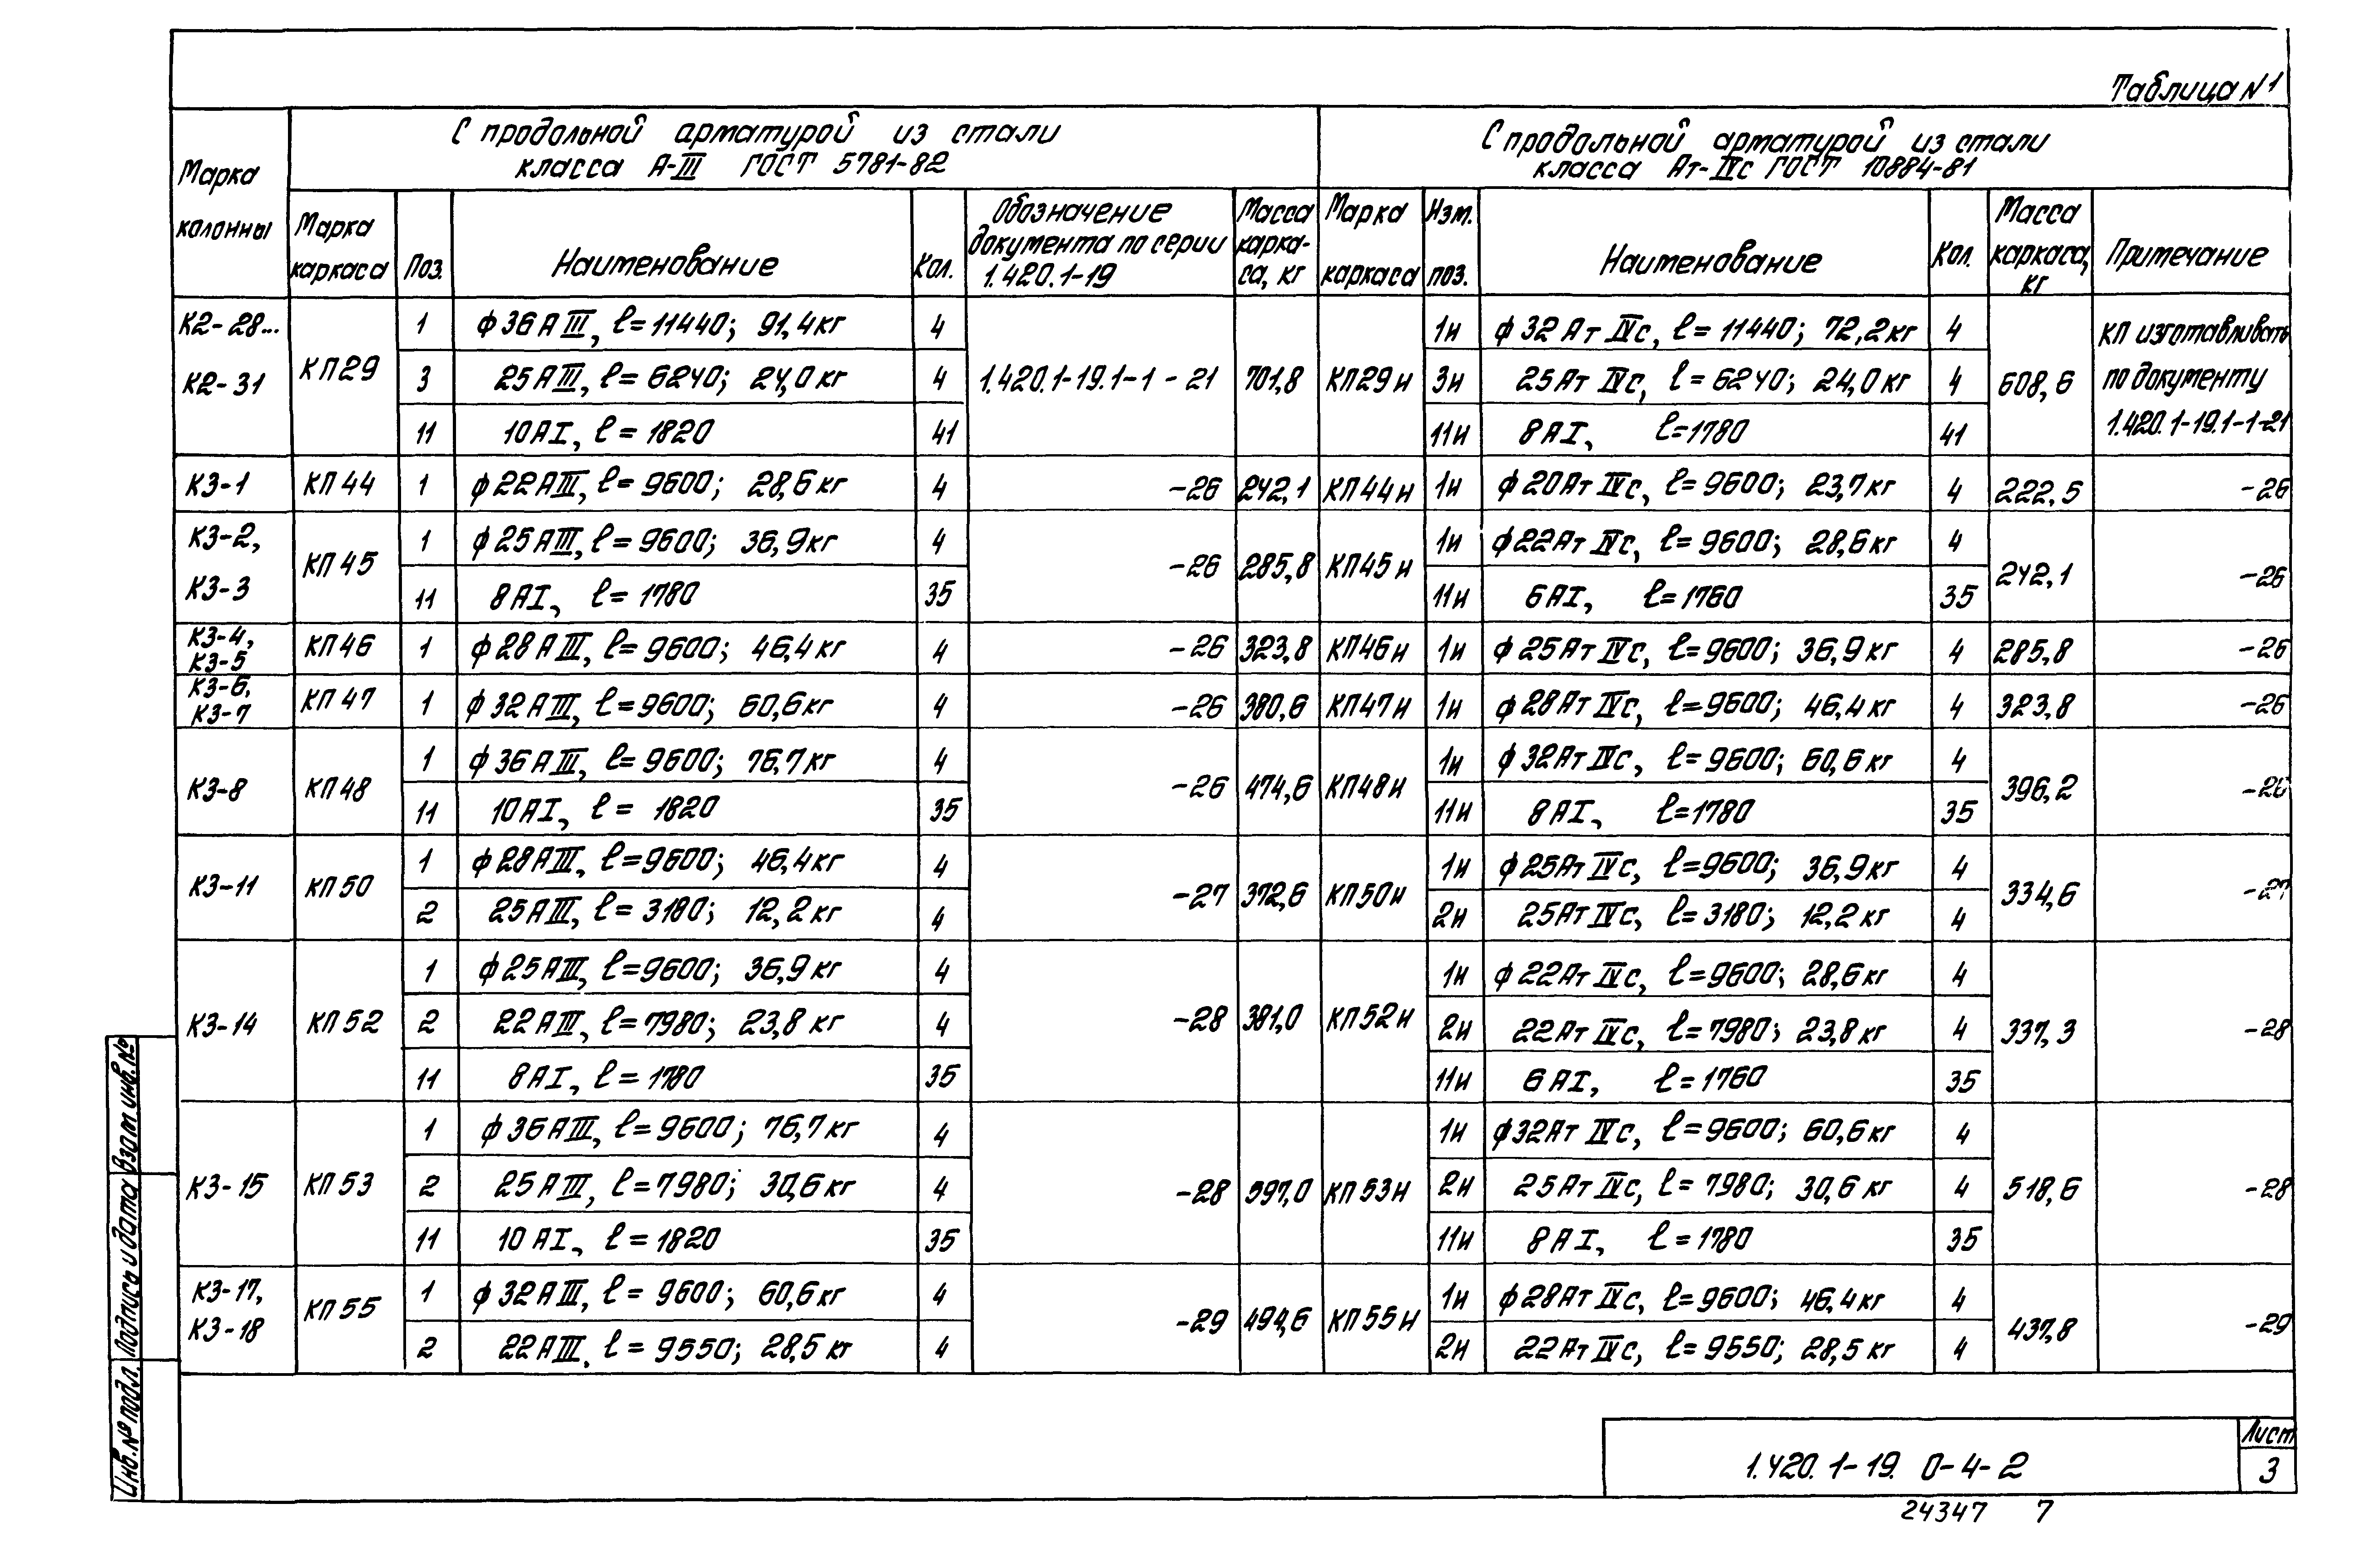 Таблица N1
Марка колонны
С продольной арматурой из стали
класса А-III ГОСТ 5781-82
С продольной арматурой из стали
класса Ат-IVс ГОСТ 10884-81
Марка каркаса
Поз.
Наименование
Кол.
Обозначение документа по серии 1.420.1-19
Масса карка-са, кг
Марка каркаса
Изм. поз.
Наименование
Кол.
Масса каркаса, кг
Примечание
К2-28... К2-31
КП29
1 ф36АIII, ℓ=11440; 91,4кг 4
3 25АIII, ℓ=6240; 24,0кг 4
11 10АI, ℓ=1820 41
1.420.1-19.1-1-21
701,8
КП29и
1и ф32Ат IVс, ℓ=11440; 72,2кг 4
3и 25Ат IVс, ℓ=6240; 24,0кг 4
11и 8АI, ℓ=1780 41
608,6
КП изготавливать
по документу
1.420.1-19.1-1-21
К3-1 КП44 1 ф22АIII, ℓ=9600; 28,6кг 4 -26 242,1 КП44и 1и ф20Ат IVс, ℓ=9600; 23,7кг 4 222,5 -26
К3-2,
К3-3
КП45
1 ф25АIII, ℓ=9600; 36,9кг 4
11 8АI, ℓ=1780 35
-26 285,8 КП45и
1и ф22Ат IVс, ℓ=9600; 28,6кг 4
11и 6АI, ℓ=1760 35
242,1 -26
К3-4,
К3-5
КП46 1 ф28АIII, ℓ=9600; 46,4кг 4 -26 323,8 КП46и 1и ф25Ат IVс, ℓ=9600; 36,9кг 4 285,8 -26
К3-6,
К3-7
КП47 1 ф32АIII, ℓ=9600; 60,6кг 4 -26 380,6 КП47и 1и ф28Ат IVс, ℓ=9600; 46,4кг 4 323,8 -26
К3-8 КП48
1 ф36АIII, ℓ=9600; 76,7кг 4
11 10АI, ℓ=1820 35
-26 474,6 КП48и
1и ф32Ат IVс, ℓ=9600; 60,6кг 4
11и 8АI, ℓ=1780 35
396,2 -26
К3-11 КП50
1 ф28АIII, ℓ=9600; 46,4кг 4
2 25АIII, ℓ=3180; 12,2кг 4
-27 372,6 КП50и
1и ф25Ат IVс, ℓ=9600; 36,9кг 4
2и 25Ат IVс, ℓ=3180; 12,2кг 4
334,6 -27
К3-14 КП52
1 ф25АIII, ℓ=9600; 36,9кг 4
2 22АIII, ℓ=7980; 23,8кг 4
11 8АI, ℓ=1780 35
-28 381,0 КП52и
1и ф22Ат IVс, ℓ=9600; 28,6кг 4
2и 22Ат IVс, ℓ=7980; 23,8кг 4
11и 6АI, ℓ=1760 35
337,3 -28
К3-15 КП53
1 ф36АIII, ℓ=9600; 76,7кг 4
2 25АIII, ℓ=7980; 30,6кг 4
11 10АI, ℓ=1820 35
-28 597,0 КП53и
1и ф32Ат IVс, ℓ=9600; 60,6кг 4
2и 25Ат IVс, ℓ=7980; 30,6кг 4
11и 8АI, ℓ=1780 35
518,6 -28
К3-17,
К3-18
КП55
1 ф32АIII, ℓ=9600; 60,6кг 4
2 22АIII, ℓ=9550; 28,5кг 4
-29 494,6 КП55и
1и ф28Ат IVс, ℓ=9600; 46,4кг 4
2и 22Ат IVс, ℓ=9550; 28,5кг 4
437,8 -29
Взам инв.№
Подпись и дата
Инв.№ подл.
1.420.1-19. 0-4-2
Лист
3
24347 7